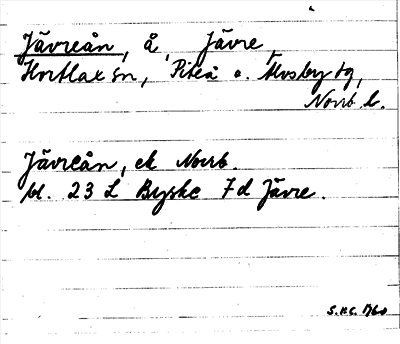 Jävreån, å, Jävre,
Hortlax sn, Piteå o. Älvsby tg,
Norrb. l.
Jävreån, ek Norrb.
bl. 23 L Byske 7d Jävre.
S.H.S. 1960